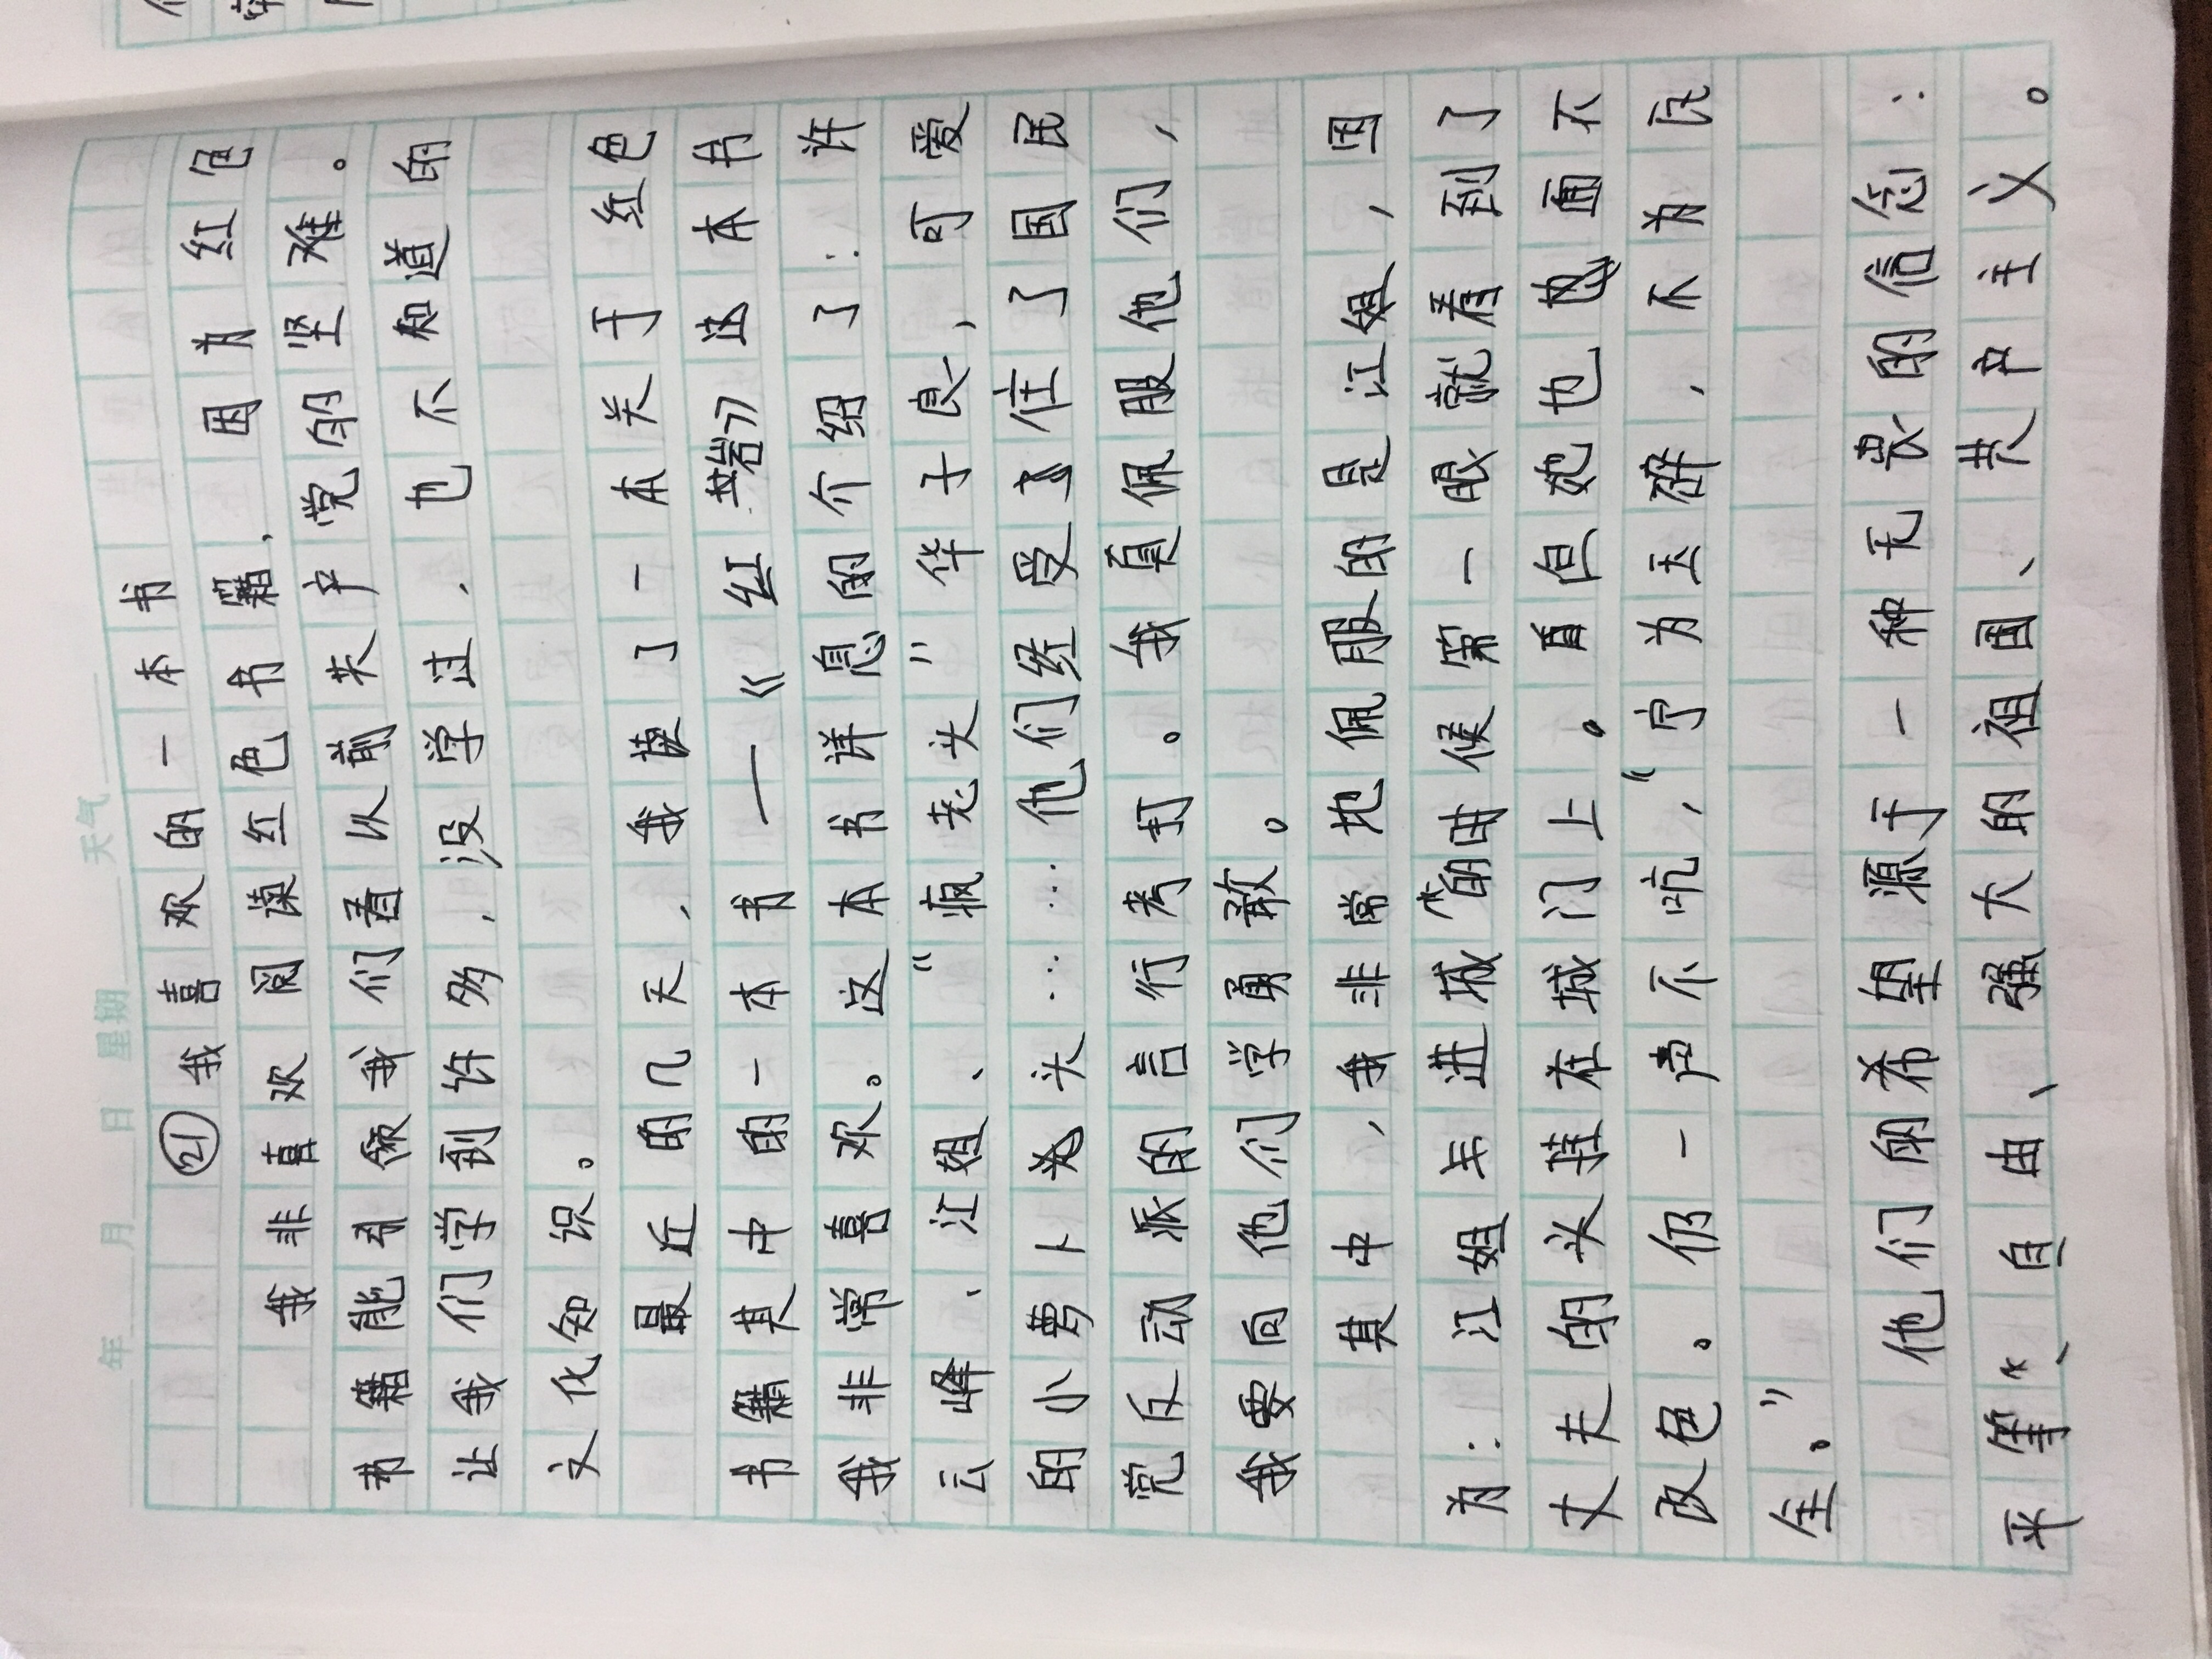 年 月 日 星期 天气
㉑我喜欢的一本书
我非喜欢阅读红色书籍,因为红色
书籍能够让我们看以前共产党的坚难。
让我们学到许多,没学过,也不知道的
文化知识。
最近的几天,我读了一本关于红色
书籍其中的一本书——《红岩》这本书
我非常喜欢。这本书详息的介绍了:许
云峰、江姐、“疯老头”华子良,可爱
的小萝卜头……他们经受住了国民
党反动派的言行考打。我真佩服他们,
我要向他们学勇敢。
其中,我非常地佩服的是江姐,因
为:江姐车进城的时候第一眼就看到了
丈夫的头挂在城门上。但她也面不
改色。仍一声不吭,“宁为玉碎,不为瓦
全。”
他们的希望源于一种无哀的信念:
平等、自由、强大的祖国、共产主义。